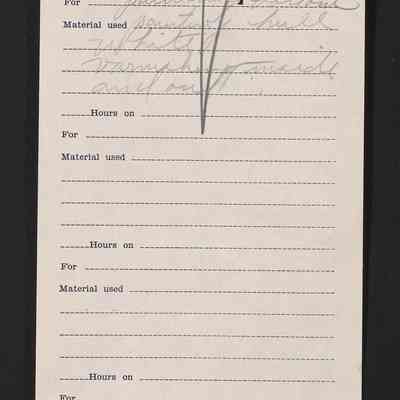 For
Material used painting hull
white
varnishing inside
and out
Hours on
For
Material used
Hours on
For
Material used
Hours on
For